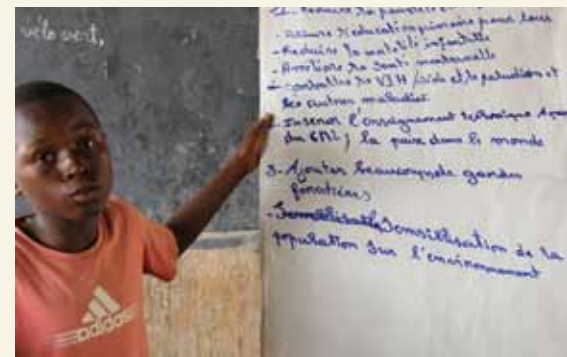 vélo vert,
- Réduire la pauvreté
- Assure l'éducation primaire pour tous
- Réduire la mortalité infantille
- Améliore la santé maternelle
- Contrôller le VIH/sida et le paludism et
les autres maladies
- Inserer l'enseignement technique
du CM2 ; la paix dans le monde
3- Ajouter beaucoup de grandes
fonctions
- Sensibilisation de la
population sur l'environnement
adidas